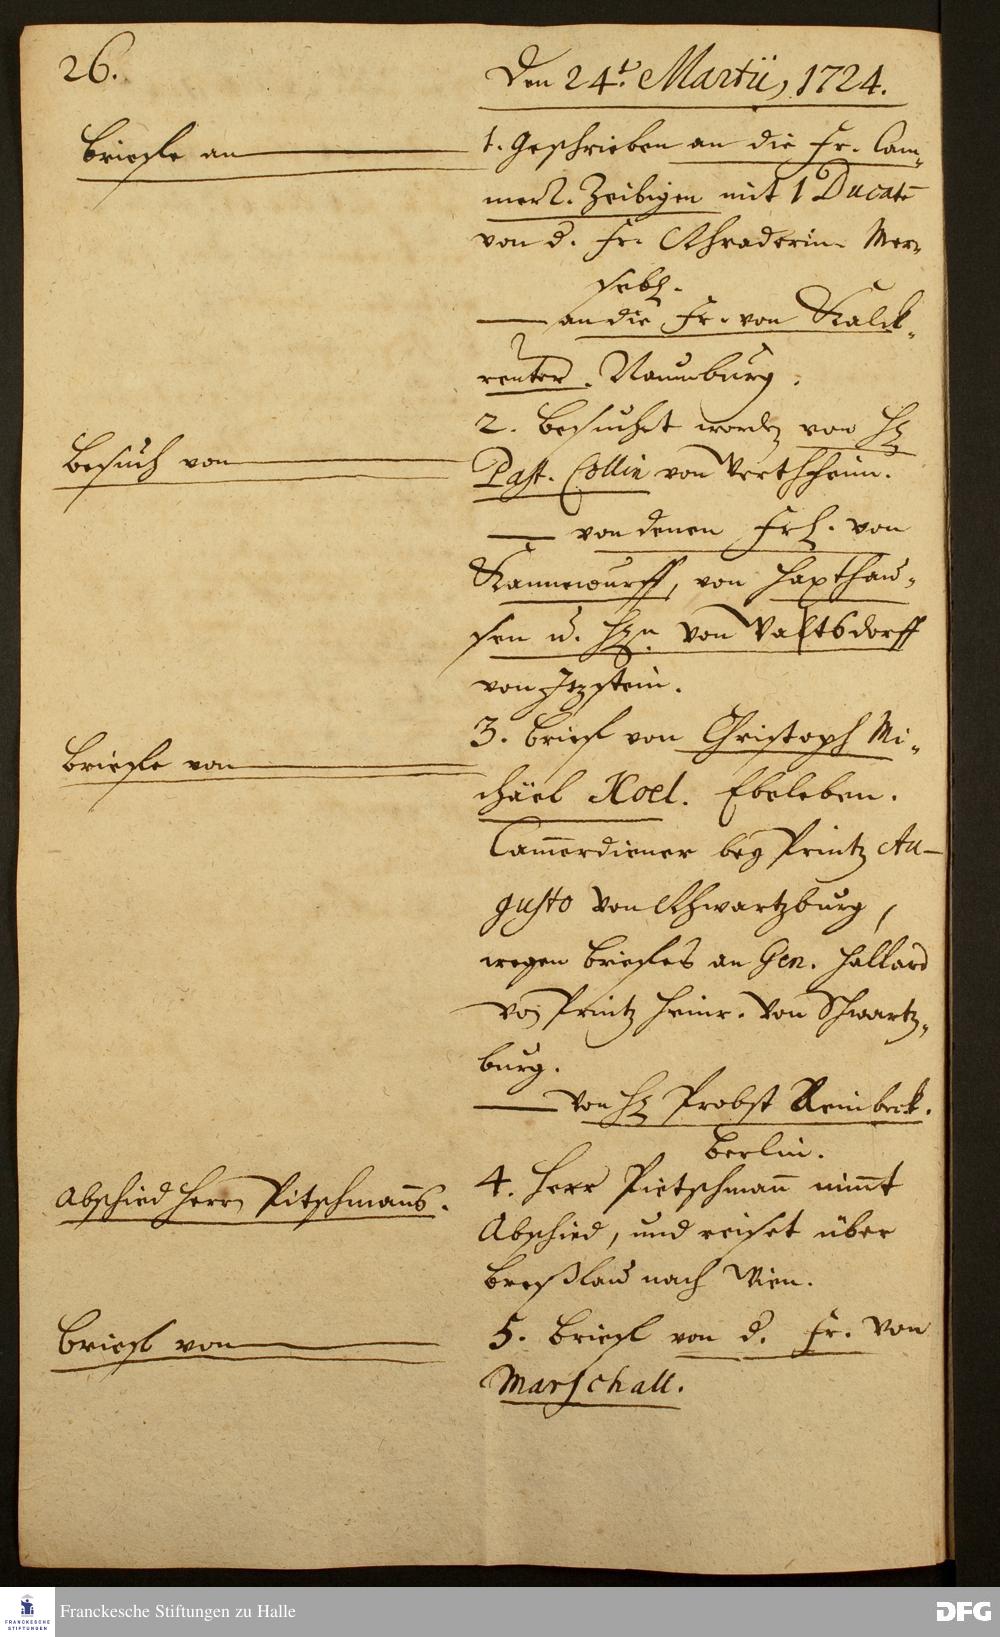 26.
Den 24.t Martii, 1724.
Briefe an
1. Geschrieben an die Fr. Cam-
merR. Zeibigen mit 1 Ducat
von d. Fr. Schraderin Mer-
seb.
— an die Fr. von Kalck-
reuter. Naumburg.
Besuch von
2. Besuchet worden von H.
Past. Collin von Wertheim.
— von denen Frl. von
Kannewurff, von Haxthau-
sen u. H.n von Waltsdorff
von Itzstein.
Briefe von
3. Brief von Christoph Mi-
chäel Noel. Ebeleben.
Cam̄erdiener bey Printz Au-
gusto von Schwartzburg,
wegen Briefes an Gen. Hallard
von Printz Heinr. von Schwartz-
burg.
— von H. Probst Reinbeck.
Berlin.
Abschied Herrn Pitschman̄s.
4. Herr Pietschman̄ nim̄t
Abschied, und reiset über
Breßlau nach Wien.
Brief von
5. Brief von d. Fr. von
Marschall.
Franckesche Stiftungen zu Halle
FRANCKESCHE
STIFTUNGEN
DFG